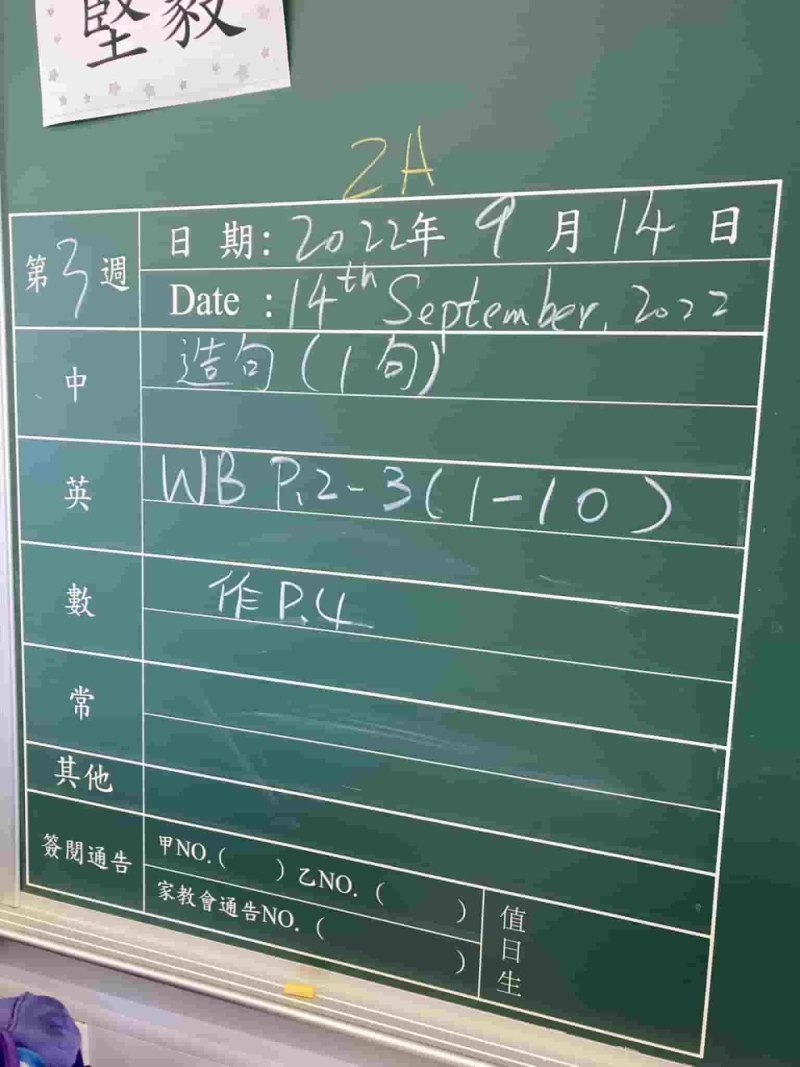 堅毅
2A
第3週
日期：2022年9月14日
Date : 14th September, 2022
中
造句(1句)
英
WB P.2-3(1-10)
數
作P.4
常
其他
簽閱通告
甲NO.( )乙NO.( )
家教會通告NO.( )
值日生